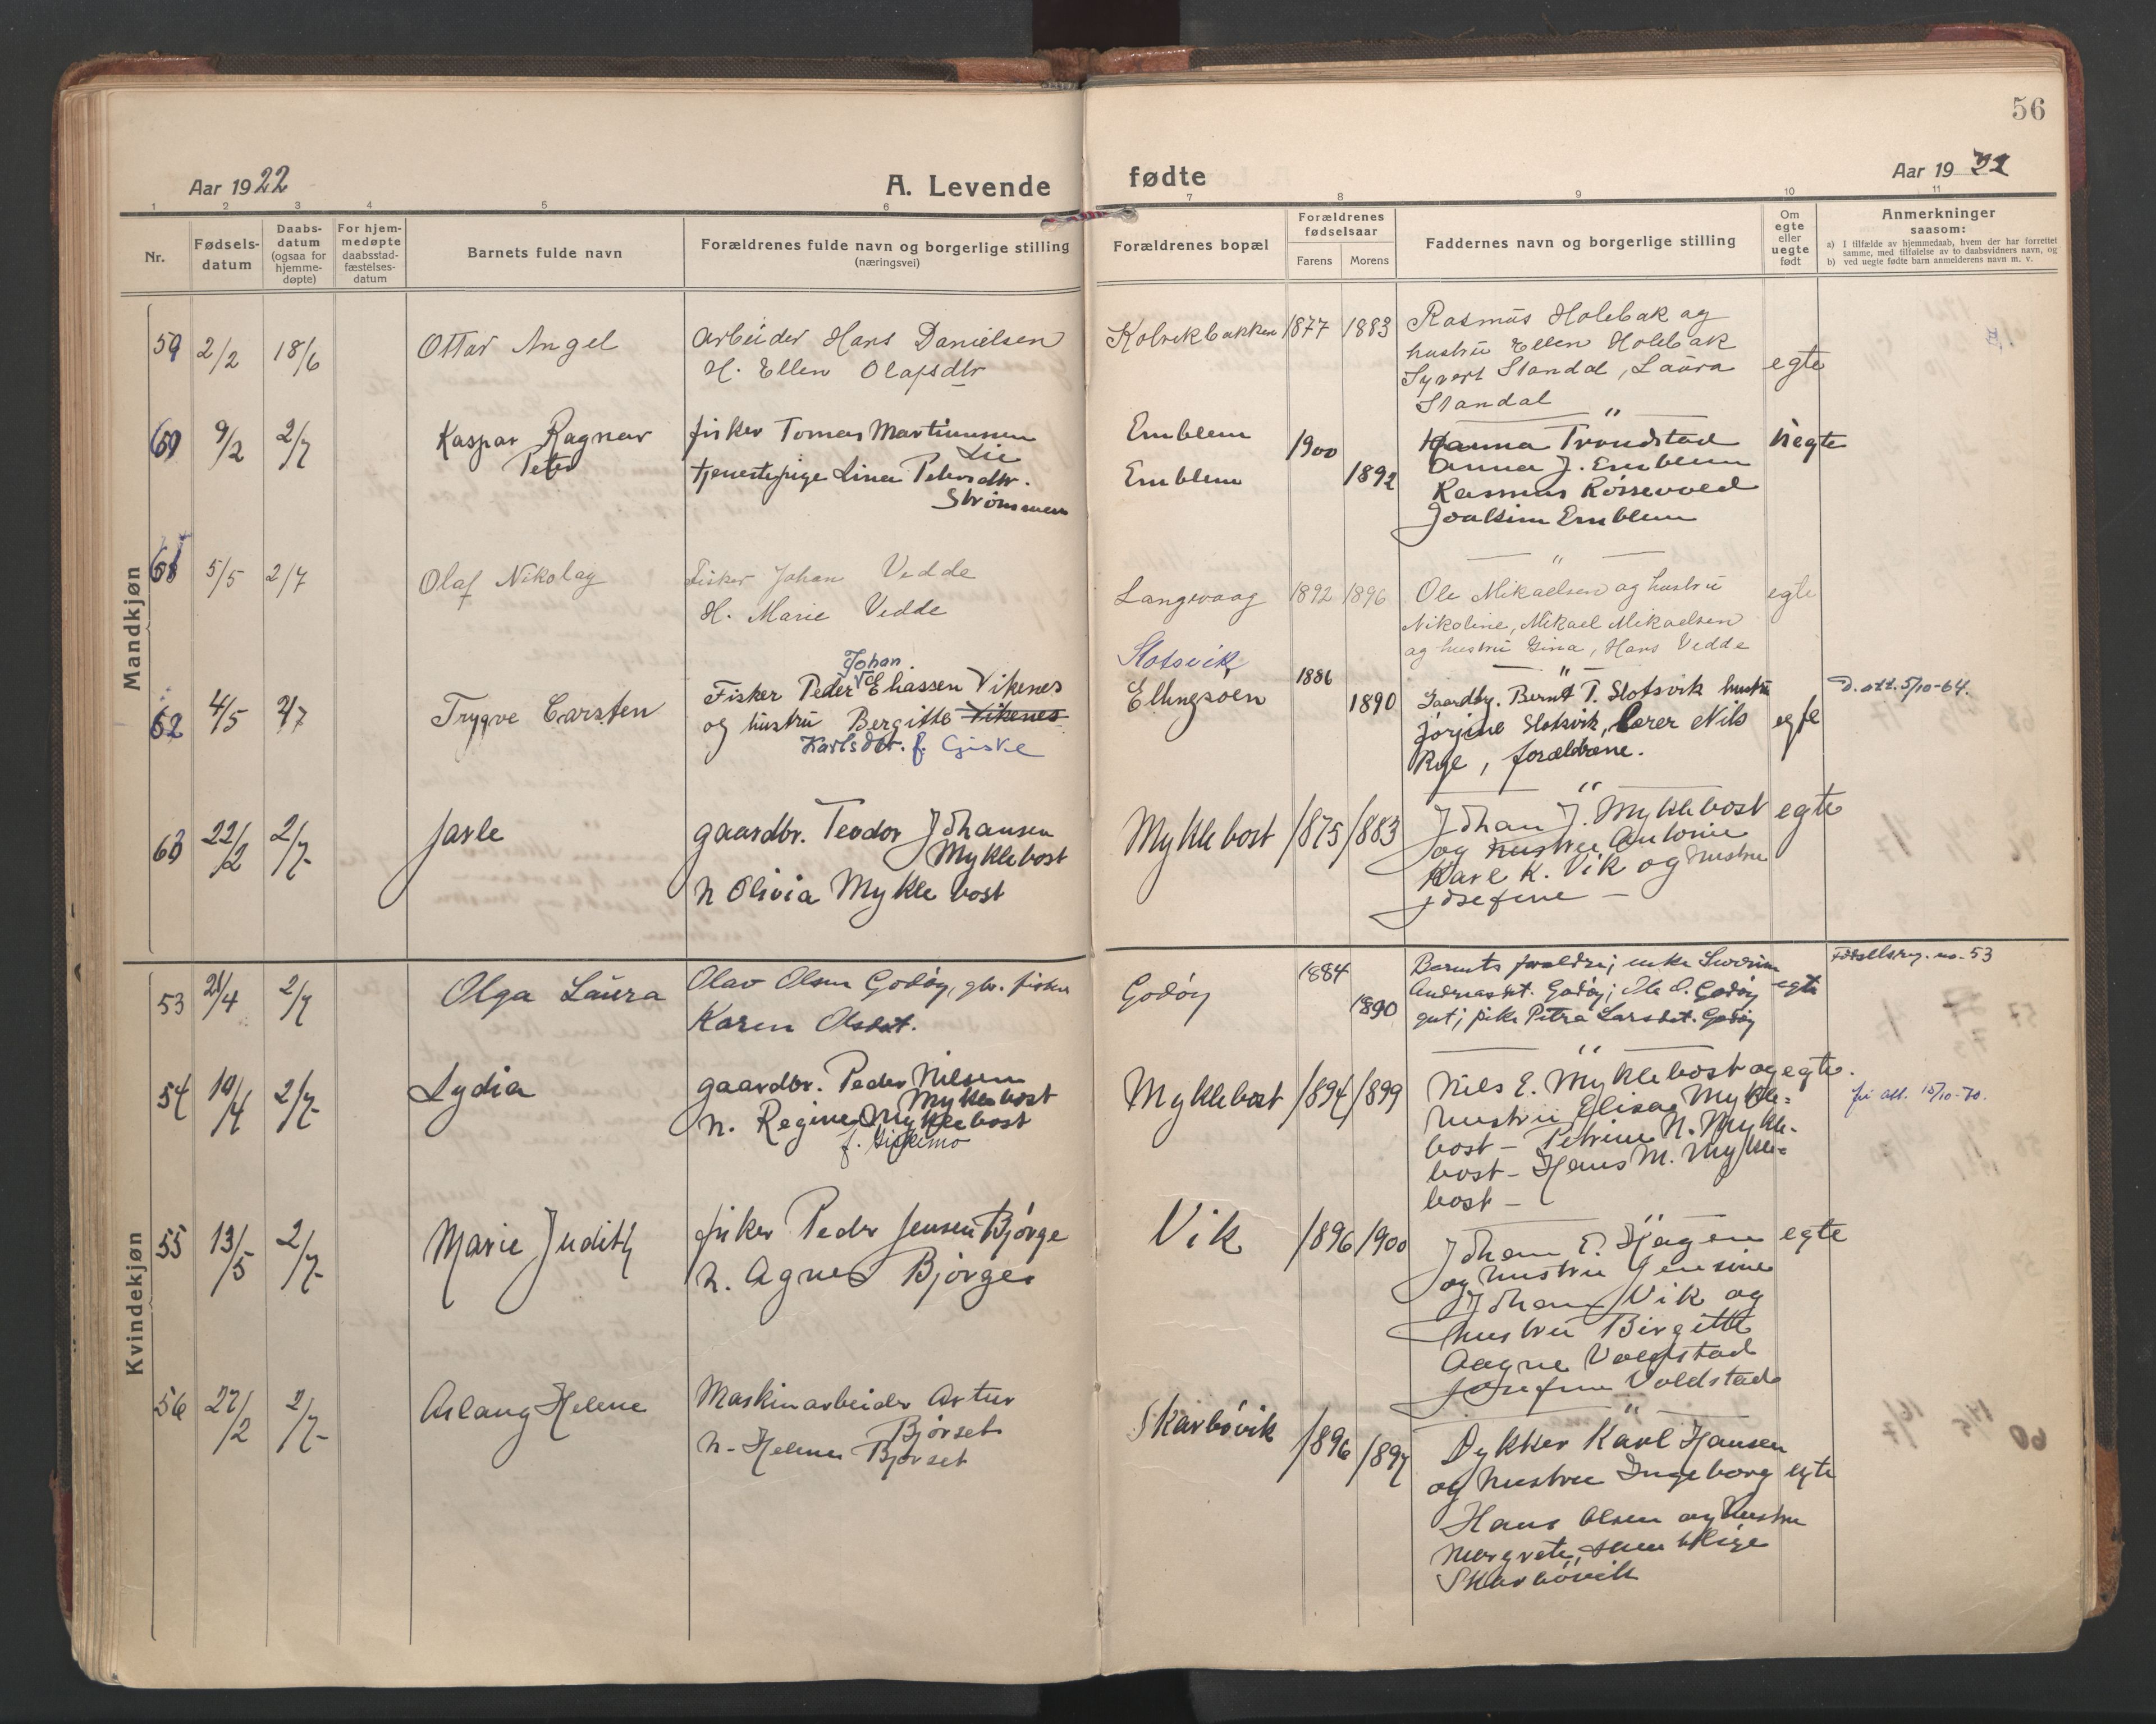 56
Aar 1922
A. Levende
fødte
Aar 1922
1 2 3 4 5 6 7 8 9 10 11
Nr.
Fødsels-
datum
Daabs-
datum
(ogsaa for
hjemme-
døpte)
For hjem-
medøpte
daabsstad-
fæstelses-
datum
Barnets fulde navn
Forældrenes fulde navn og borgerlige stilling
(næringsvei)
Forældrenes bopæl
Forældrenes
fødselsaar
Farens Morens
Faddernes navn og borgerlige stilling
Om
egte
eller
uegte
født
Anmerkninger
saasom:
a) I tilfælde av hjemmedaab, hvem der har forrettet
samme, med tilføielse av to daabsvidners navn, og
b) ved uegte fødte barn anmelderens navn m. v.
Mandkjøn
59 2/2 18/6 Ottar Angel
Arbeider Hans Danielsen
H. Ellen Olafsdtr
Kolvikbakken 1877 1883
Rasmus Holebak og
hustru Ellen Holebak
Syvert Standal, Laura
Standal
egte
60 9/2 2/7 Kaspar Ragnar
Peter
fisker Tomas Martinussen
Lie
tjenestepige Lina Petersdtr.
Strømmen
Emblem 1900
Emblem 1892
"
Hanna Trondstad
Anna J. Emblem
Rasmus Røssevold
Joakim Emblem
uegte
61 5/5 2/7 Olaf Nikolay
Fisker Johan Vedde
H. Marie Vedde
Langevaag 1892 1896
"
Ole Mikaelsen og hustru
Nikoline, Mikael Mikaelsen
og hustru Gina, Hans Vedde
egte
62 4/5 2/7 Trygve Carsten
Johan
Fisker Peder Eliassen Vikenes
og hustru Bergitte Vikenes
Karlsdtr. f. Giske
Slotsvik
Ellingsøen 1886 1890
"
Gaardbr. Bernt P. Slotsvik hustru
Jørgine Slotsvik, Lærer Nils
Rye, forældrene.
egte
D. att. 5/10-64.
63 22/2 2/7 Jarle
gaardbr. Teodor Johansen
Myklebost
h Olivia Myklebost
Myklebost 1875 1883
"
Johan J. Myklebost
og hustru Antonie
Karl K. Vik og hustru
Josefine -
egte
Kvindekjøn
53 21/4 2/7 Olga Laura
Olav Olsen Godøy, gbr. fisker
Karen Olsdat.
Godøy 1884 1890
Barnets forældre; enke Severine
Andreasdt. Godøy; Ole O. Godøy
gut; pike Petra Larsdt. Godøy
egte
Fødselsreg. no. 53
54 10/4 2/7 Lydia
gaardbr. Peder Nilsen
Myklebost
h. Regine Myklebost
f. Giskemo
Myklebost 1894 1899
"
Nils E. Myklebost og
hustru Elisa Mykle-
bost - Petrine N. Mykle-
bost - Hans M. Mykle-
bost -
egte.
fri att. 15/10-70.
55 13/5 2/7 Marie Judith
fisker Peder Jensen Bjørge
h. Agnes Bjørge
Vik 1896 1900
"
Johan E. Hagen
og hustru Gensine
Johan Vik og
hustru Birgitte
Aagne Voldstad
Josefine Voldstad
egte
56 27/2 2/7 Aslaug Helene
Maskinarbeider Artur
Bjørset
h. Helene Bjørset
Skarbøvik 1896 1897
"
Dykker Karl Hansen
og hustru Ingeborg
Hans Olsen og hustru
Margrete, samtlige
Skarbøvik
egte